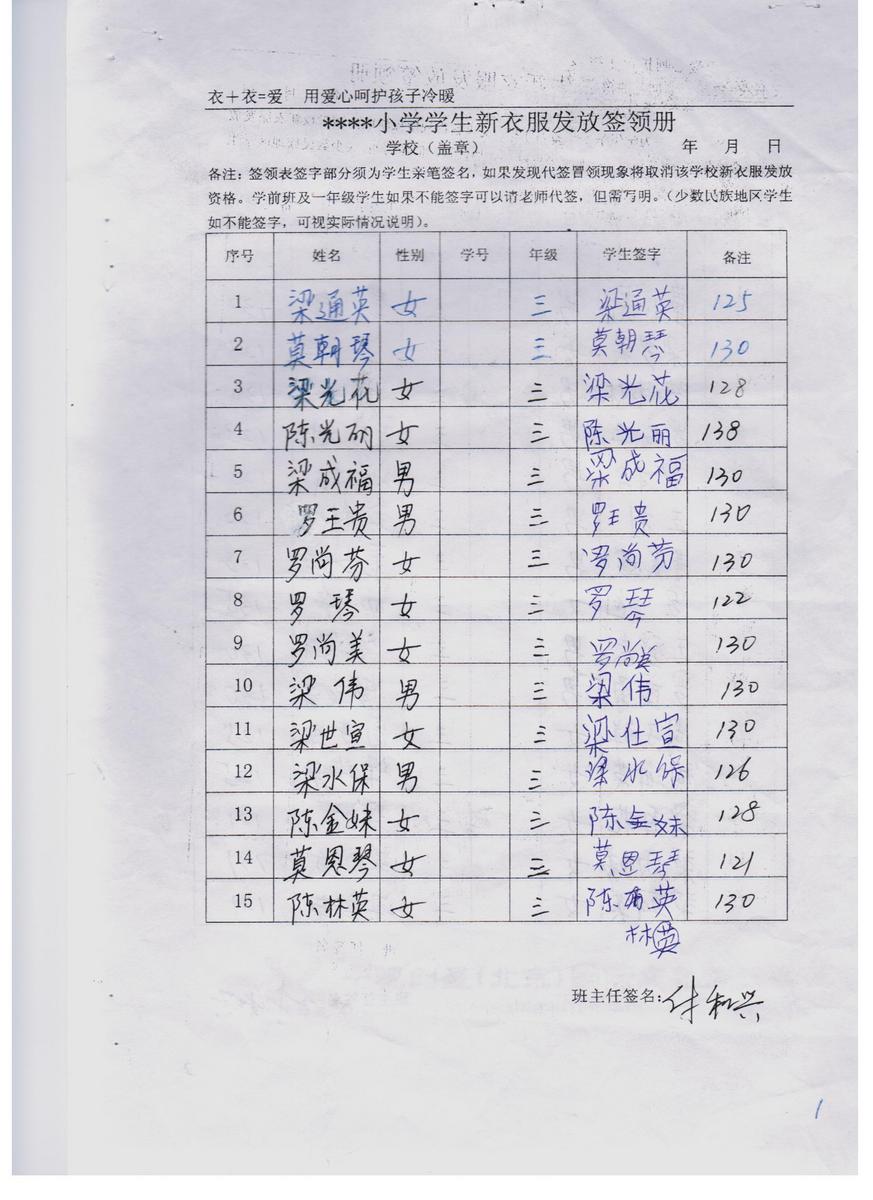 衣+衣=爱 用爱心呵护孩子冷暖
****小学学生新衣服发放签领册
学校（盖章） 年 月 日
备注：签领表签字部分须为学生亲笔签名，如果发现代签冒领现象将取消该学校新衣服发放
资格。学前班及一年级学生如果不能签字可以请老师代签，但需写明。（少数民族地区学生
如不能签字，可视实际情况说明）。
序号 姓名 性别 学号 年级 学生签字 备注
1 梁通英 女 三 梁通英 125
2 莫朝琴 女 三 莫朝琴 130
3 梁光花 女 三 梁光花 128
4 陈光丽 女 三 陈光丽 138
5 梁成福 男 三 梁成福 130
6 罗王贵 男 三 罗王贵 130
7 罗尚芬 女 三 罗尚芬 130
8 罗琴 女 三 罗琴 122
9 罗尚美 女 三 罗尚美 130
10 梁伟 男 三 梁伟 130
11 梁世宣 女 三 梁仕宣 130
12 梁水保 男 三 梁水保 126
13 陈金妹 女 三 陈金妹 128
14 莫恩琴 女 三 莫恩琴 121
15 陈林英 女 三 陈 英 130
林英
班主任签名：付和兴
1